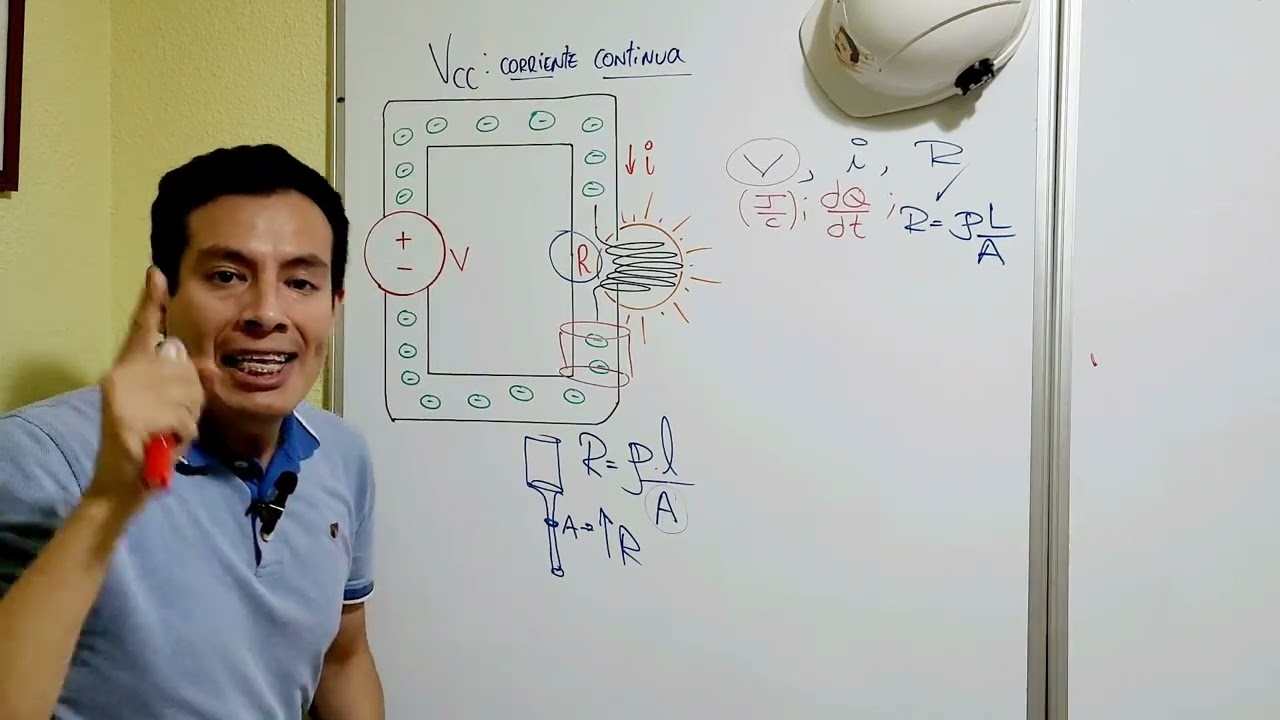 Vcc: CORRIENTE CONTINUA
↓ i
V, i, R
(J/C); dQ/dt; R = ρ L/A
+
-
V
R
R = ρ.l/A
A → ↑ R